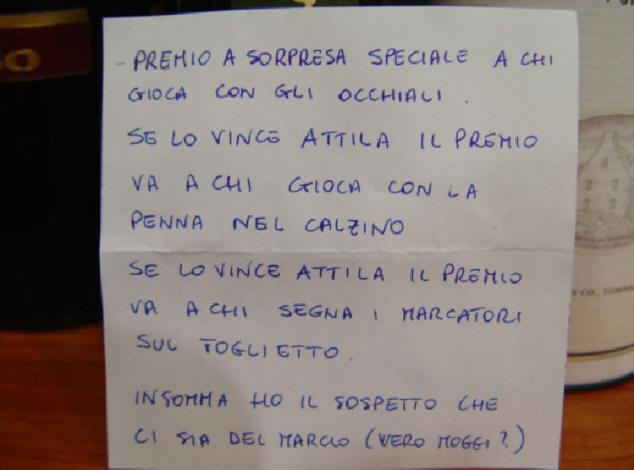 - PREMIO A SORPRESA SPECIALE A CHI
GIOCA CON GLI OCCHIALI.
SE LO VINCE ATTILA IL PREMIO
VA A CHI GIOCA CON LA
PENNA NEL CALZINO
SE LO VINCE ATTILA IL PREMIO
VA A CHI SEGNA I MARCATORI
SUL FOGLIETTO.
INSOMMA HO IL SOSPETTO CHE
CI SIA DEL MARCIO (VERO MOGGI?)